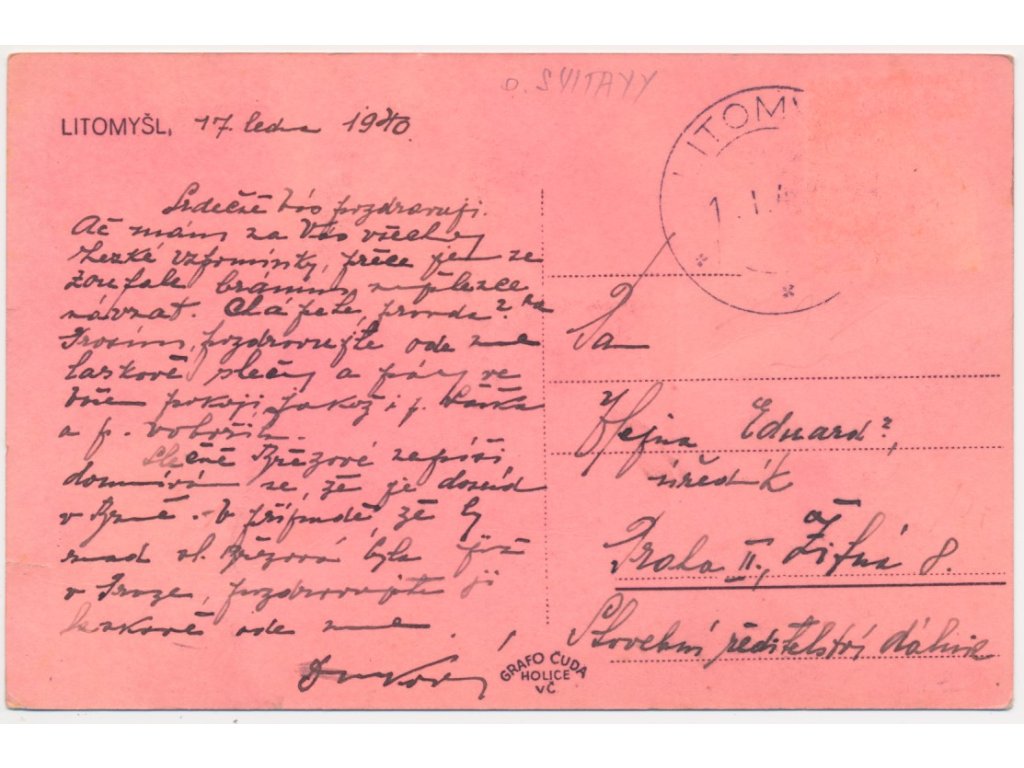 o. SVITAVY
LITOMYŠL, 17. ledna 1940.
LITOMY
1 . I. 4
Srdečně Vás pozdravuji.
Ač mám za Vás všechny
hezké vzpomínky, přece jen se
zoufale bráním
návrat. pravda?
Prosím, pozdravujte ode mne
laskavě slečny a pány ve
Vašem pokoji, jakož i p.
a p.
Slečně Březové nepíši,
domnívám se, že je dosud
v Brně. V případě, že by
snad sl. Březová byla již
v Praze, pozdravujte ji
laskavě ode mne.
Pan
Hejna Eduard,
úředník
Praha II., Žitná 8.
Stavební ředitelství dálnic
GRAFO ČUDA
HOLICE
VČ